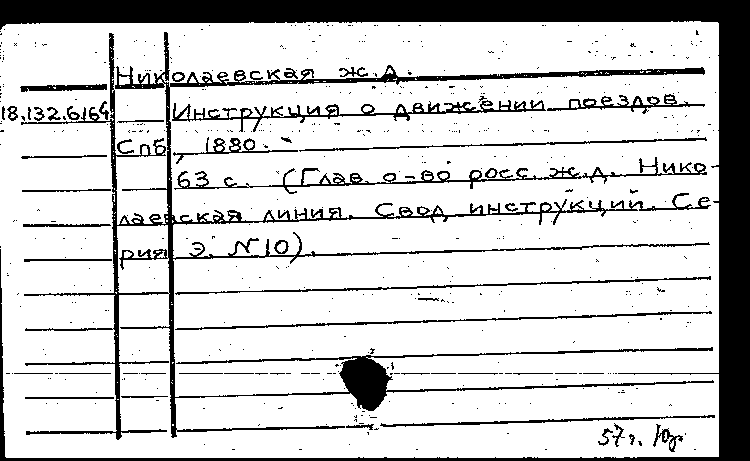 Николаевская ж.д.
18.132.6.164 Инструкция о движении поездов.
Спб, 1880.
63 с. (Глав. о-во росс. ж.д. Нико-
лаевская линия. Свод инструкций. Се-
рия Э. №10).
57 г.